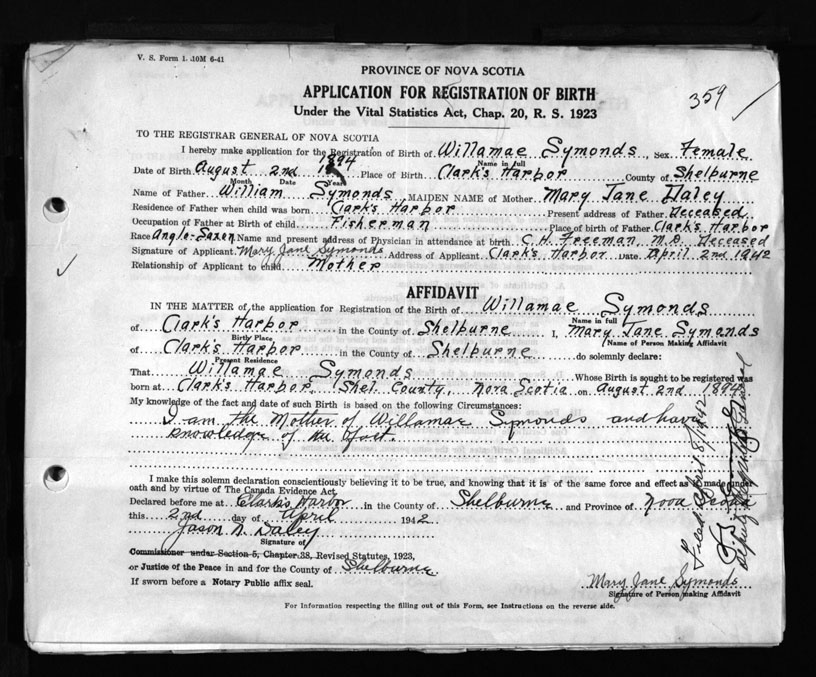 V. S. Form 1. 10M 6-41
PROVINCE OF NOVA SCOTIA
APPLICATION FOR REGISTRATION OF BIRTH
Under the Vital Statistics Act, Chap. 20, R. S. 1923
359
TO THE REGISTRAR GENERAL OF NOVA SCOTIA
I hereby make application for the Registration of Birth of Willamae Symonds, Sex Female
Name in full
Date of Birth August 2nd 1894 Place of Birth Clark's Harbor County of Shelburne
Month Date Years
Name of Father William Symonds MAIDEN NAME of Mother Mary Jane Daley
Residence of Father when child was born Clark's Harbor Present address of Father Deceased
Occupation of Father at Birth of child Fisherman Place of birth of Father Clark's Harbor
Race Anglo-Saxon Name and present address of Physician in attendance at birth C. H. Freeman, M.D. Deceased
Signature of Applicant Mary Jane Symonds Address of Applicant Clark's Harbor Date April 2nd 1942
Relationship of Applicant to child Mother
AFFIDAVIT
IN THE MATTER of the application for Registration of the Birth of Willamae Symonds
Name in full
of Clark's Harbor in the County of Shelburne I, Mary Jane Symonds
Birthy Place Name of Person Making Affidavit
of Clark's Harbor in the County of Shelburne do solemnly declare:
Present Residence
That Willamae Symonds Whose Birth is sought to be registered was
born at Clark's Harbor, Shel. County, Nova Scotia on August 2nd 1894
My knowledge of the fact and date of such Birth is based on the following Circumstances:
I am the Mother of Willamae Symonds and have
knowledge of the fact.
I make this solemn declaration conscientiously believing it to be true, and knowing that it is of the same force and effect as if made under
oath and by virtue of The Canada Evidence Act.
Declared before me at Clark's Harbor in the County of Shelburne and Province of Nova Scotia
this 2nd day of April 1942
Jason N. Daley
Signature of
Commissioner under Section 5, Chapter 38, Revised Statutes, 1923,
or Justice of the Peace in and for the County of Shelburne
If sworn before a Notary Public affix seal.
Mary Jane Symonds
Signature of Person making Affidavit
For Information respecting the filling out of this Form, see Instructions on the reverse side.
Filed April 8/1942
Deputy